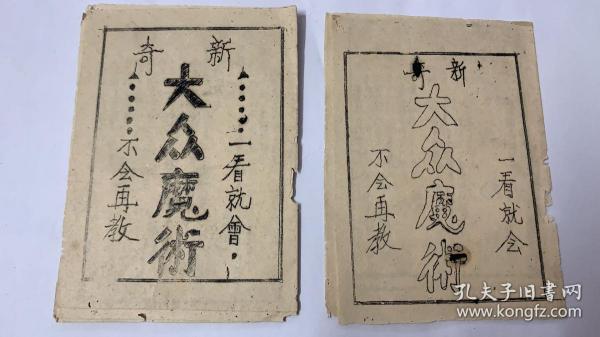 新奇
大众魔術
一看就會，
不会再教
新奇
大众魔術
一看就会
不会再教
孔夫子旧书网
www.kongfz.com